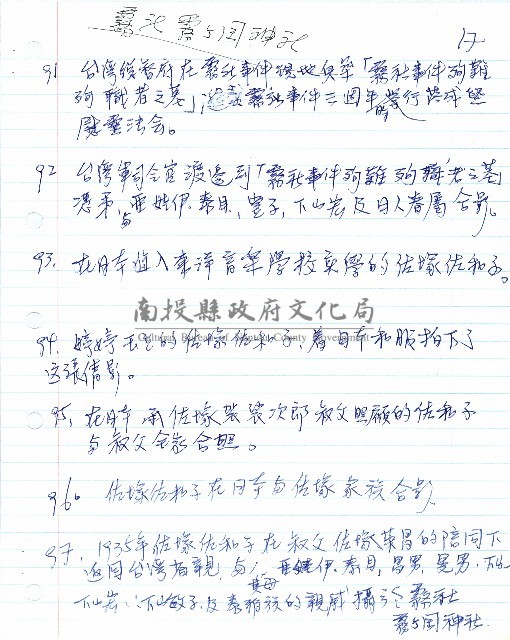 霧社 霧ケ岡神社
17
91 台灣總督府在霧社事件現地負築「霧社事件殉難
殉職者之墓」, 霧社事件三周年時舉行落成暨
慰靈法会。
92 台灣軍司令官渡邊到「霧社事件殉難殉職者之墓
憑弔,與亞娃伊.泰目,豊子,下山宏及日人眷屬合影。
93. 在日本進入東洋音樂學校就學的佐塚佐和子。
南投縣政府文化局
Cultural Bureau of Nantou County Government
94. 婷婷玉立的佐塚佐和子,着日本和服拍下了
这張倩影。
95, 在日本由佐塚袈裟次郎叔父照顧的佐和子
与叔父全家合照。
96。 佐塚佐和子在日本与佐塚家族合影
97. 1935年佐塚佐和子在叔父佐塚
昌的陪同下
返回台灣省親,与 亞娃伊.泰目,昌男,晃男,
下山宏,下山敏子及其母泰雅族的親戚攝於霧社
霧ケ岡神社.